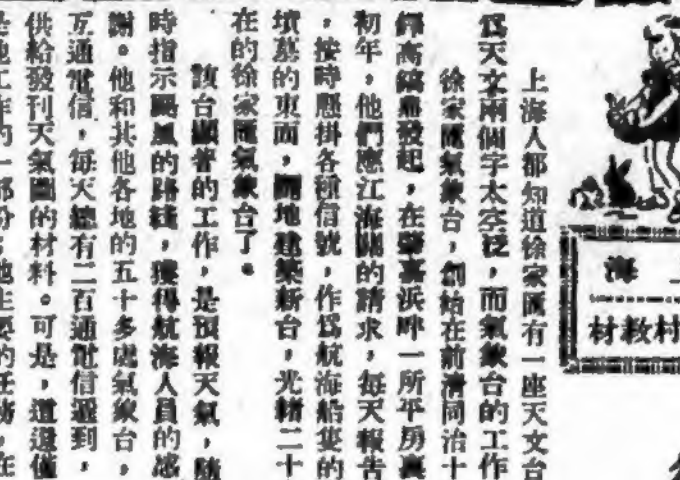 上海人都知道徐家匯有一座天文台
爲天文兩個字太空泛,而氣象台的工作
徐家匯氣象台,創始在前清同治十
鐸高縞鼎發起,在肇嘉浜畔一所平房裏
初年,他們應江海關的請求,每天報告
,按時懸掛各種信號,作爲航海船隻的
墳墓的東面,開地建築新台,光緒二十
在的徐家匯氣象台了。
該台顯著的工作,是預報天氣,隨
時指示颶風的路綫,獲得航海人員的感
謝。他和其他各地的五十多處氣象台,
互通電信,每天總有二百通電信遞到,
供給發刊天氣圖的材料。可是,這還僅
是他工作的一部份;他主要的任務,在
海 上
材教材